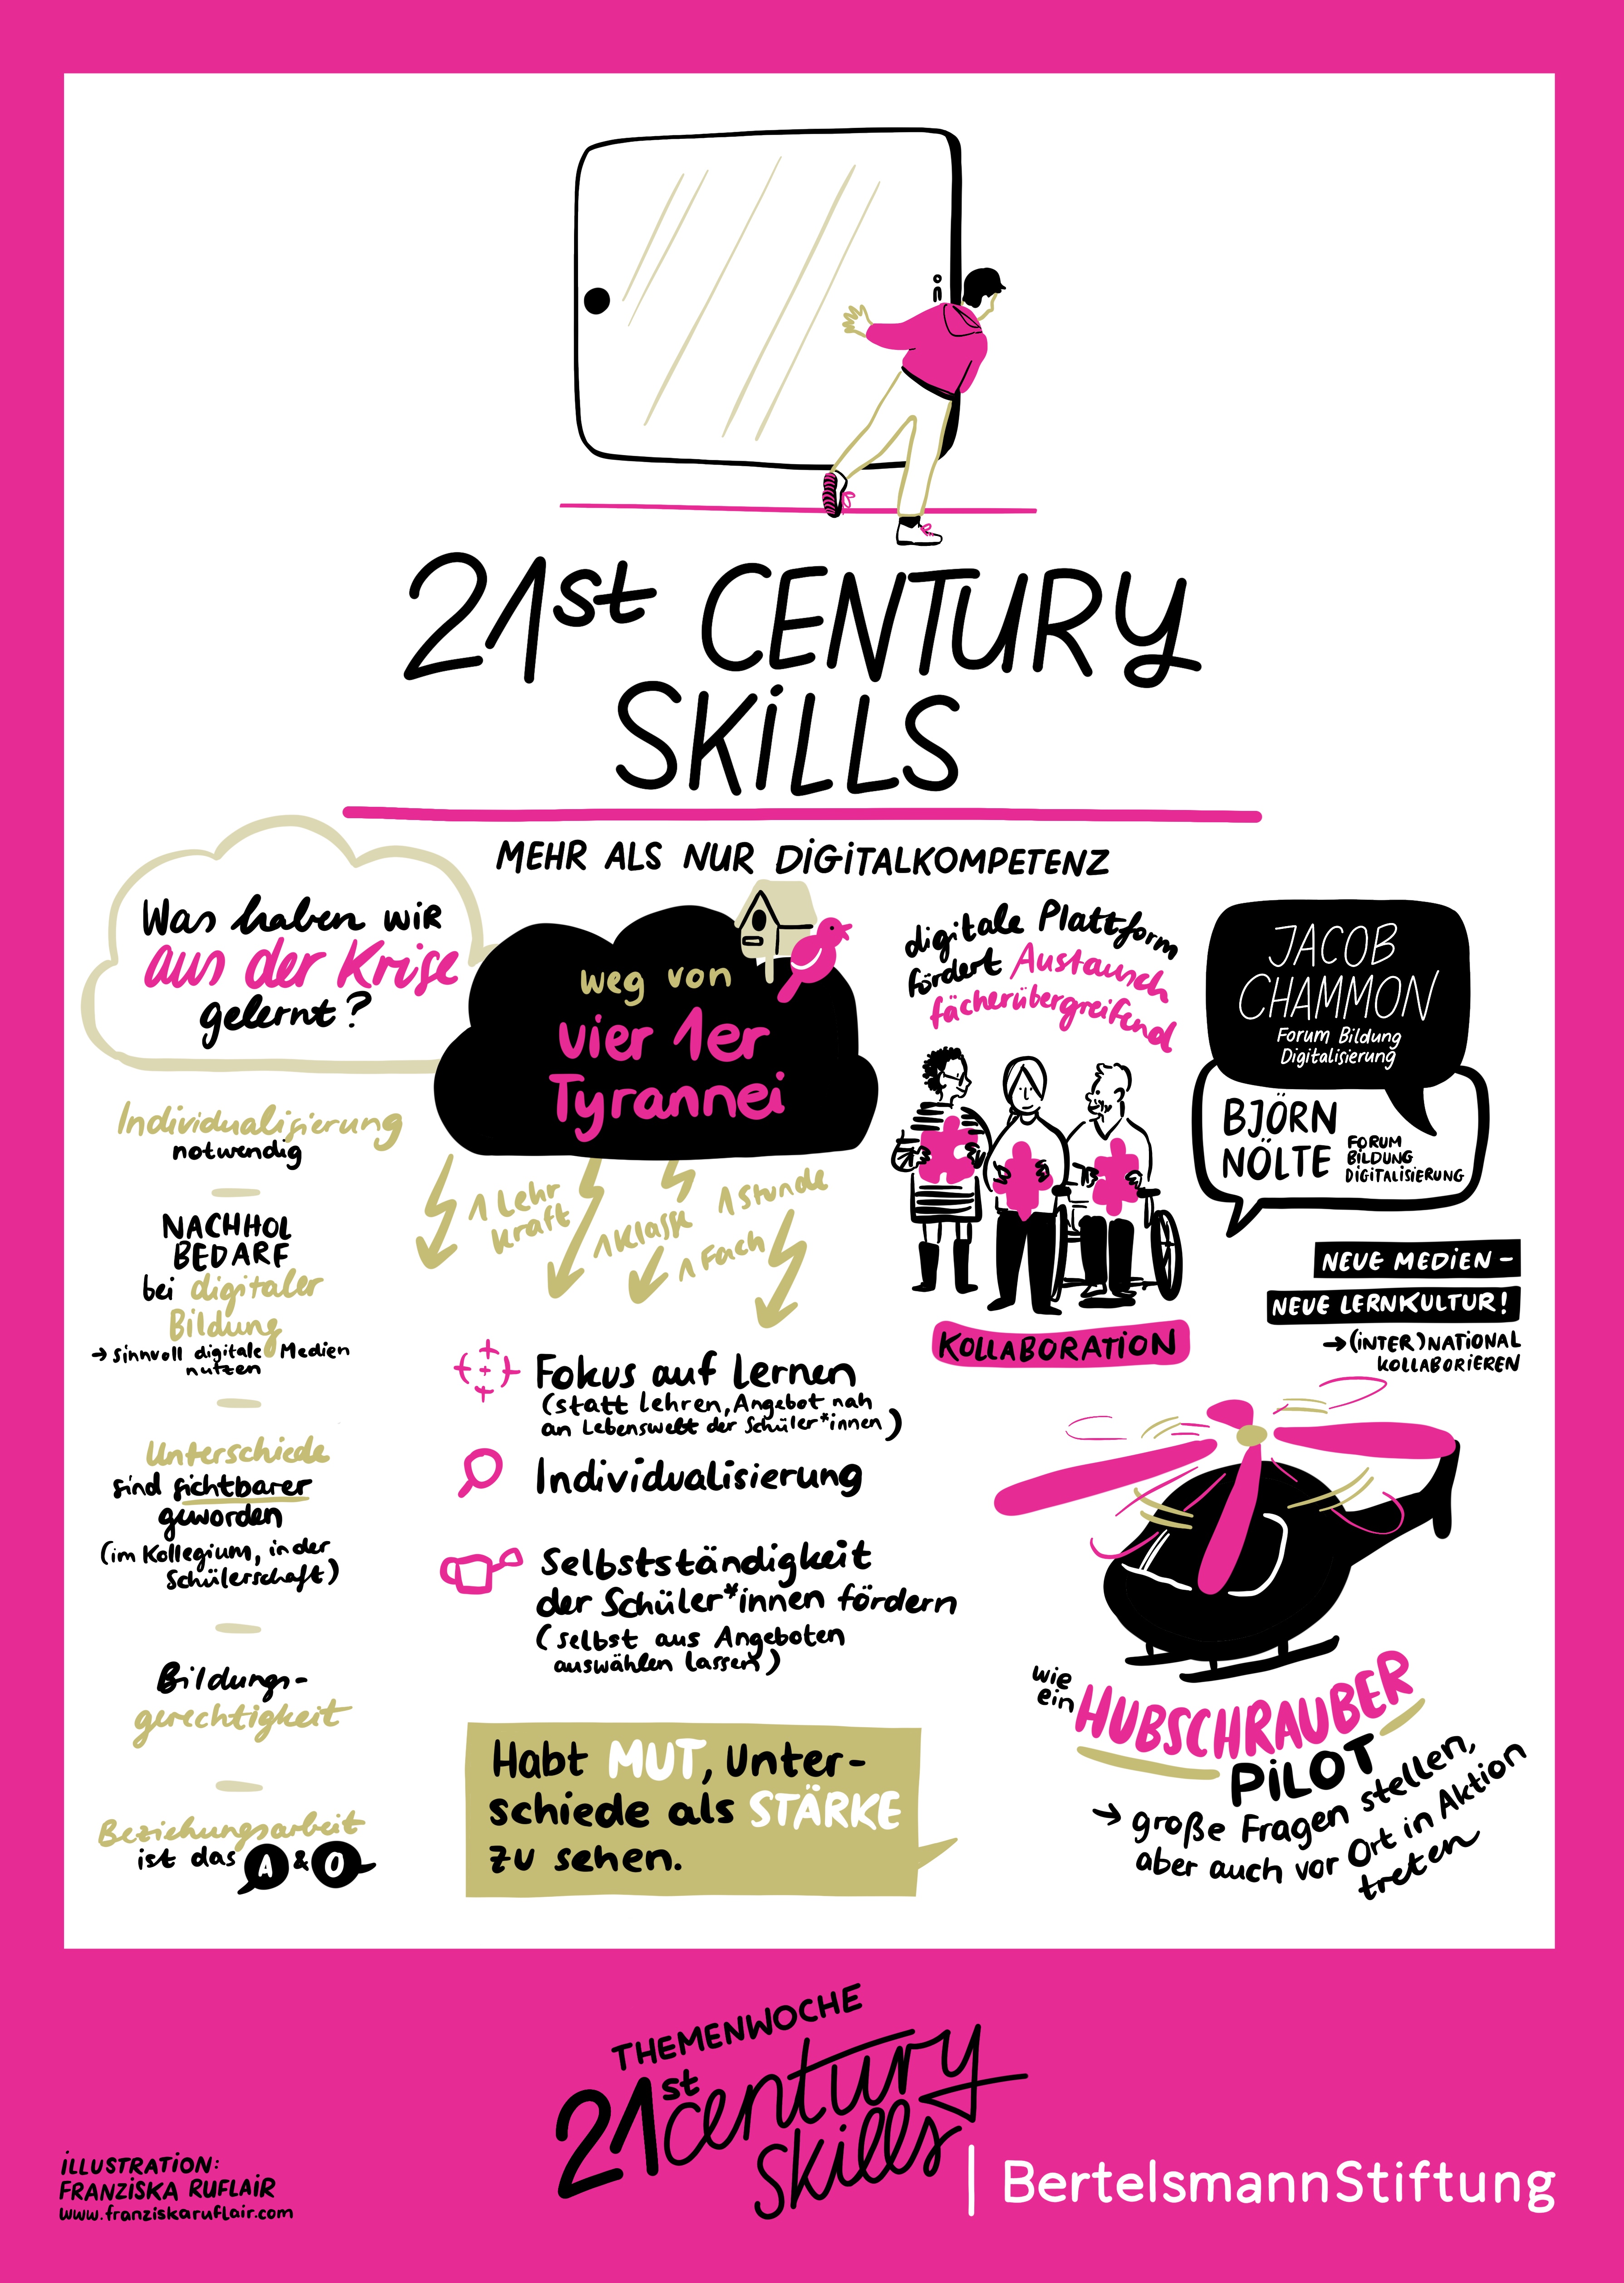 21st CENTURY
SKiLLS
MEHR ALS NUR DiGiTALKOMPETENZ
Was haben wir
aus der Krise
gelernt?
Individualisierung
notwendig
NACHHOL
BEDARF
bei digitaler
Bildung
→ sinnvoll digitale Medien
nutzen
Unterschiede
sind sichtbarer
geworden
(im Kollegium, in der
Schülerschaft)
Bildungs-
gerechtigkeit
Beziehungsarbeit
ist das A & O
weg von
vier 1er
Tyrannei
1 Lehr
kraft
1 Klasse
1 Stunde
1 Fach
Fokus auf Lernen
(statt lehren, Angebot nah
an Lebenswelt der Schüler*innen)
Individualisierung
Selbstständigkeit
der Schüler*innen fördern
(selbst aus Angeboten
auswählen lassen)
Habt MUT, Unter-
schiede als STÄRKE
zu sehen.
digitale Plattform
fördert Austausch
fächerübergreifend
KOLLABORATiON
JACOB
CHAMMON
Forum Bildung
Digitalisierung
BJÖRN
NÖLTE
FORUM
BILDUNG
DIGITALISIERUNG
NEUE MEDiEN -
NEUE LERNKULTUR!
→ (iNTER)NATiONAL
KOLLABORiEREN
wie
ein
HUBSCHRAUBER
PiLOT
→ große Fragen stellen,
aber auch vor Ort in Aktion
treten
THEMENWOCHE
21st century
skills
iLLUSTRATiON:
FRANZiSKA RUFLAiR
www.franziskaruflair.com
BertelsmannStiftung